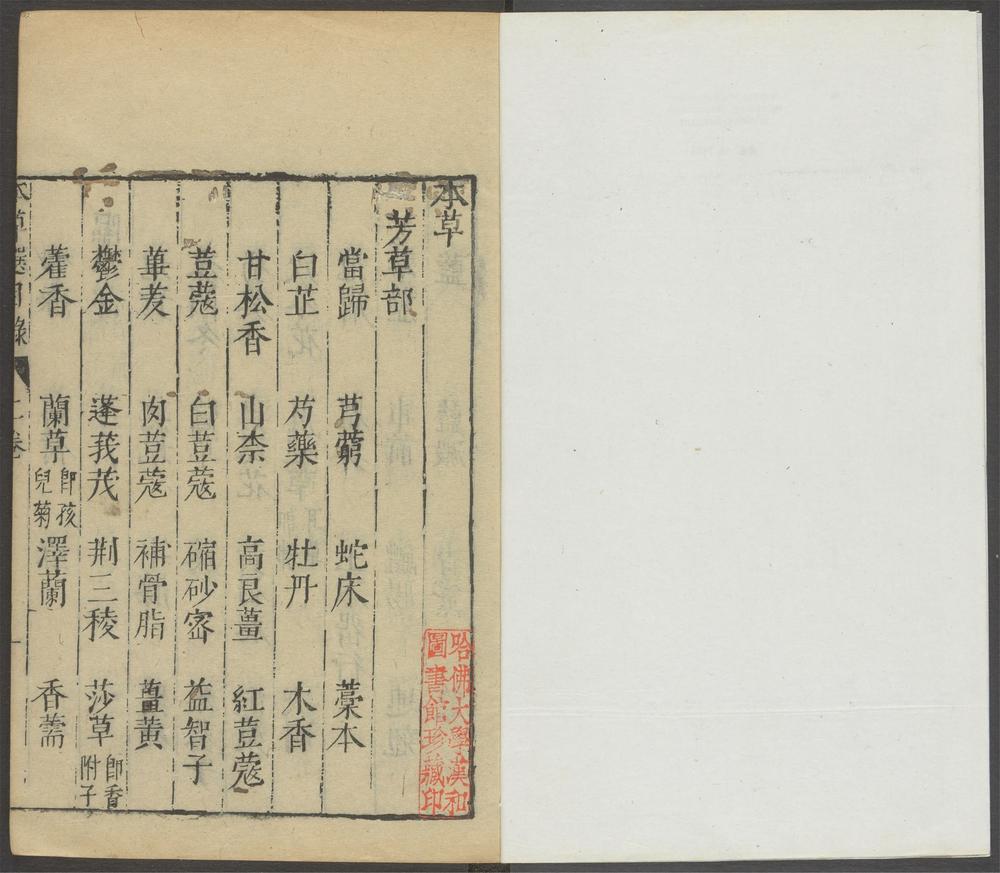 本草
芳草部
當歸 芎藭 蛇床 藁本
白芷 芍藥 牡丹 木香
甘松香 山柰 高良薑 紅荳蔻
荳蔻 白荳蔻 縮砂宻 益智子
蓽茇 肉荳蔻 補骨脂 薑黃
鬱金 蓬莪茂 荆三稜 莎草 即香附子
藿香 蘭草 即孩兒菊 澤蘭 香薷
本草選目錄 二卷 一
哈佛大學漢和圖書館珍藏印